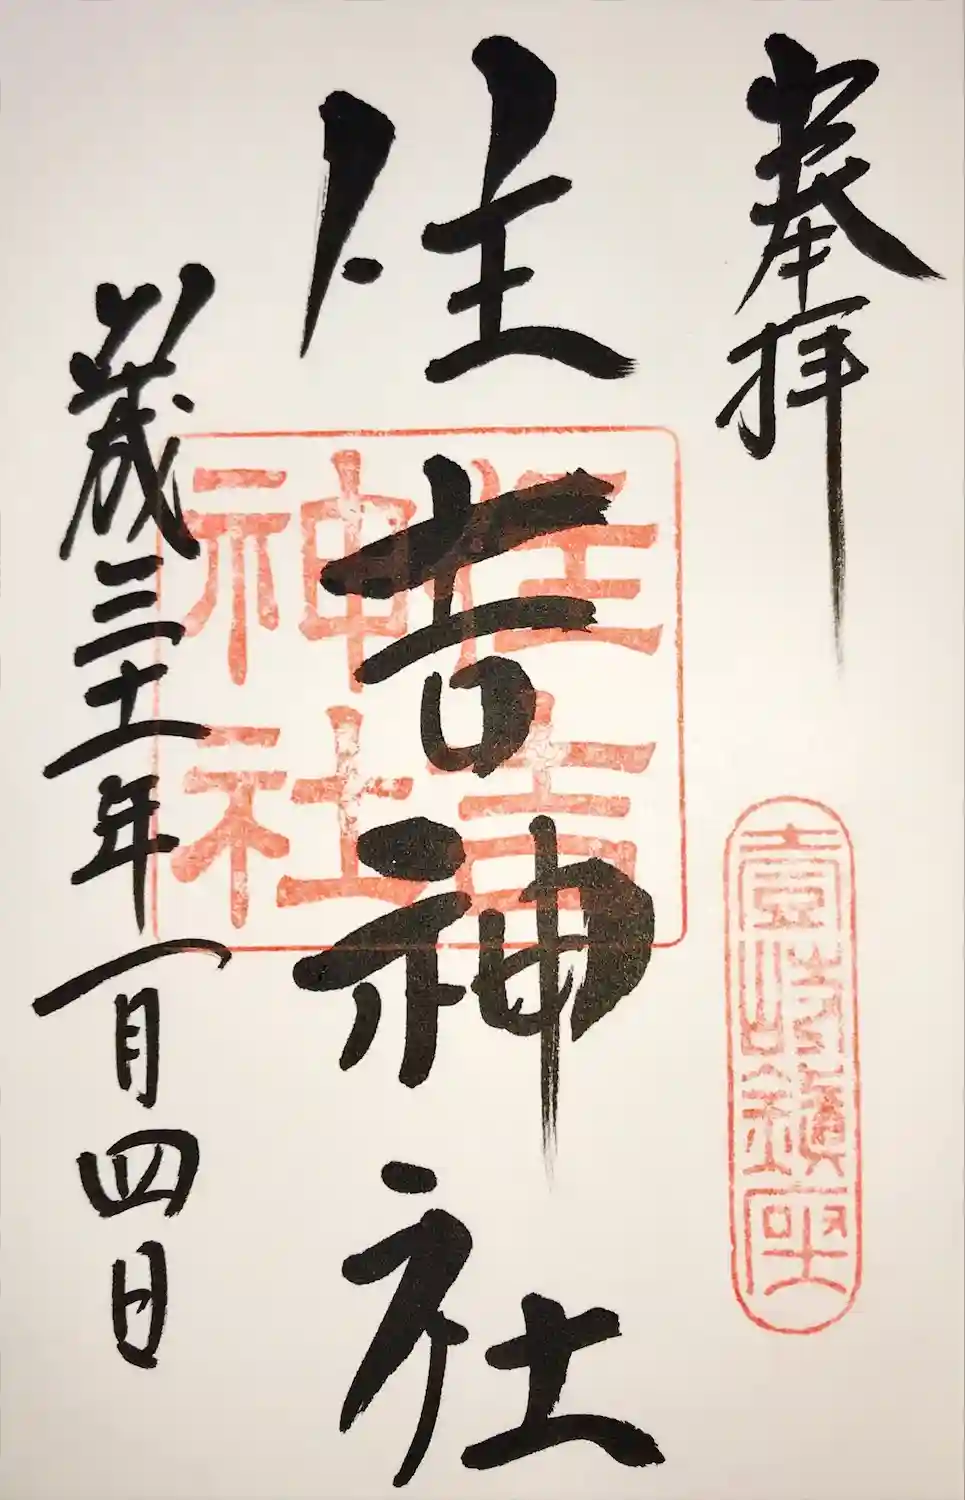 奉拝
壹岐鎮座
住吉神社
住吉
神社
歳三十一年一月四日